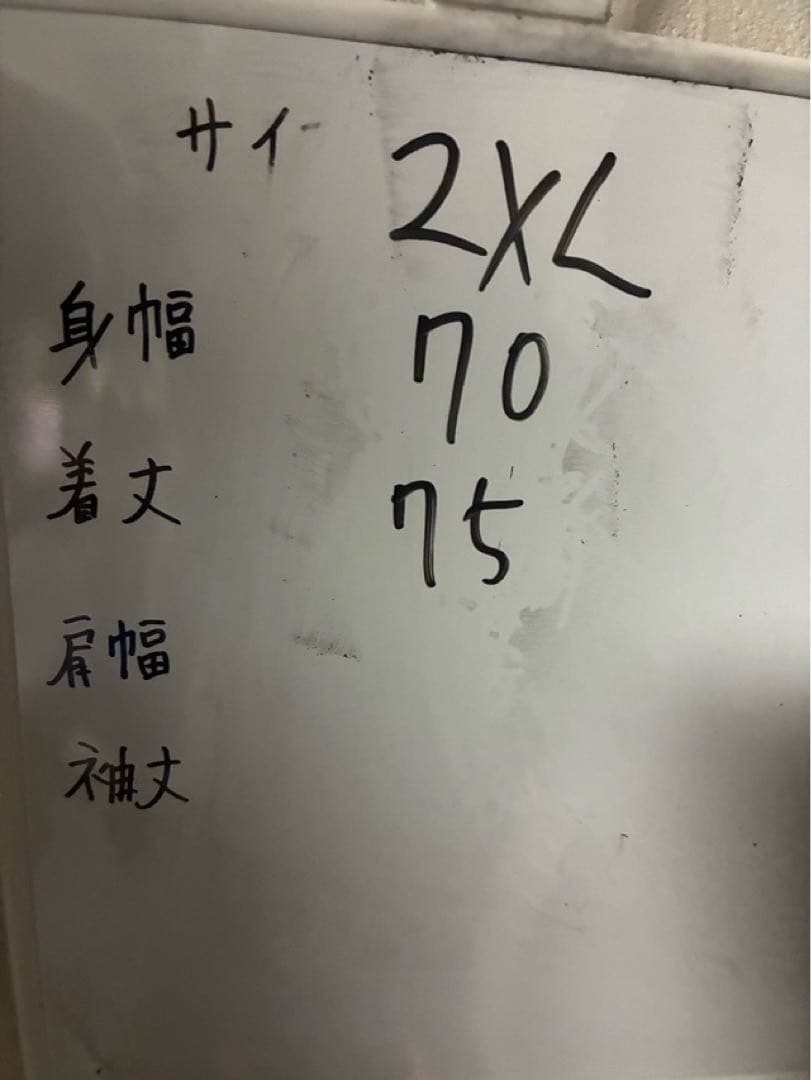 サイ 2XL
身幅 70
着丈 75
肩幅
袖丈